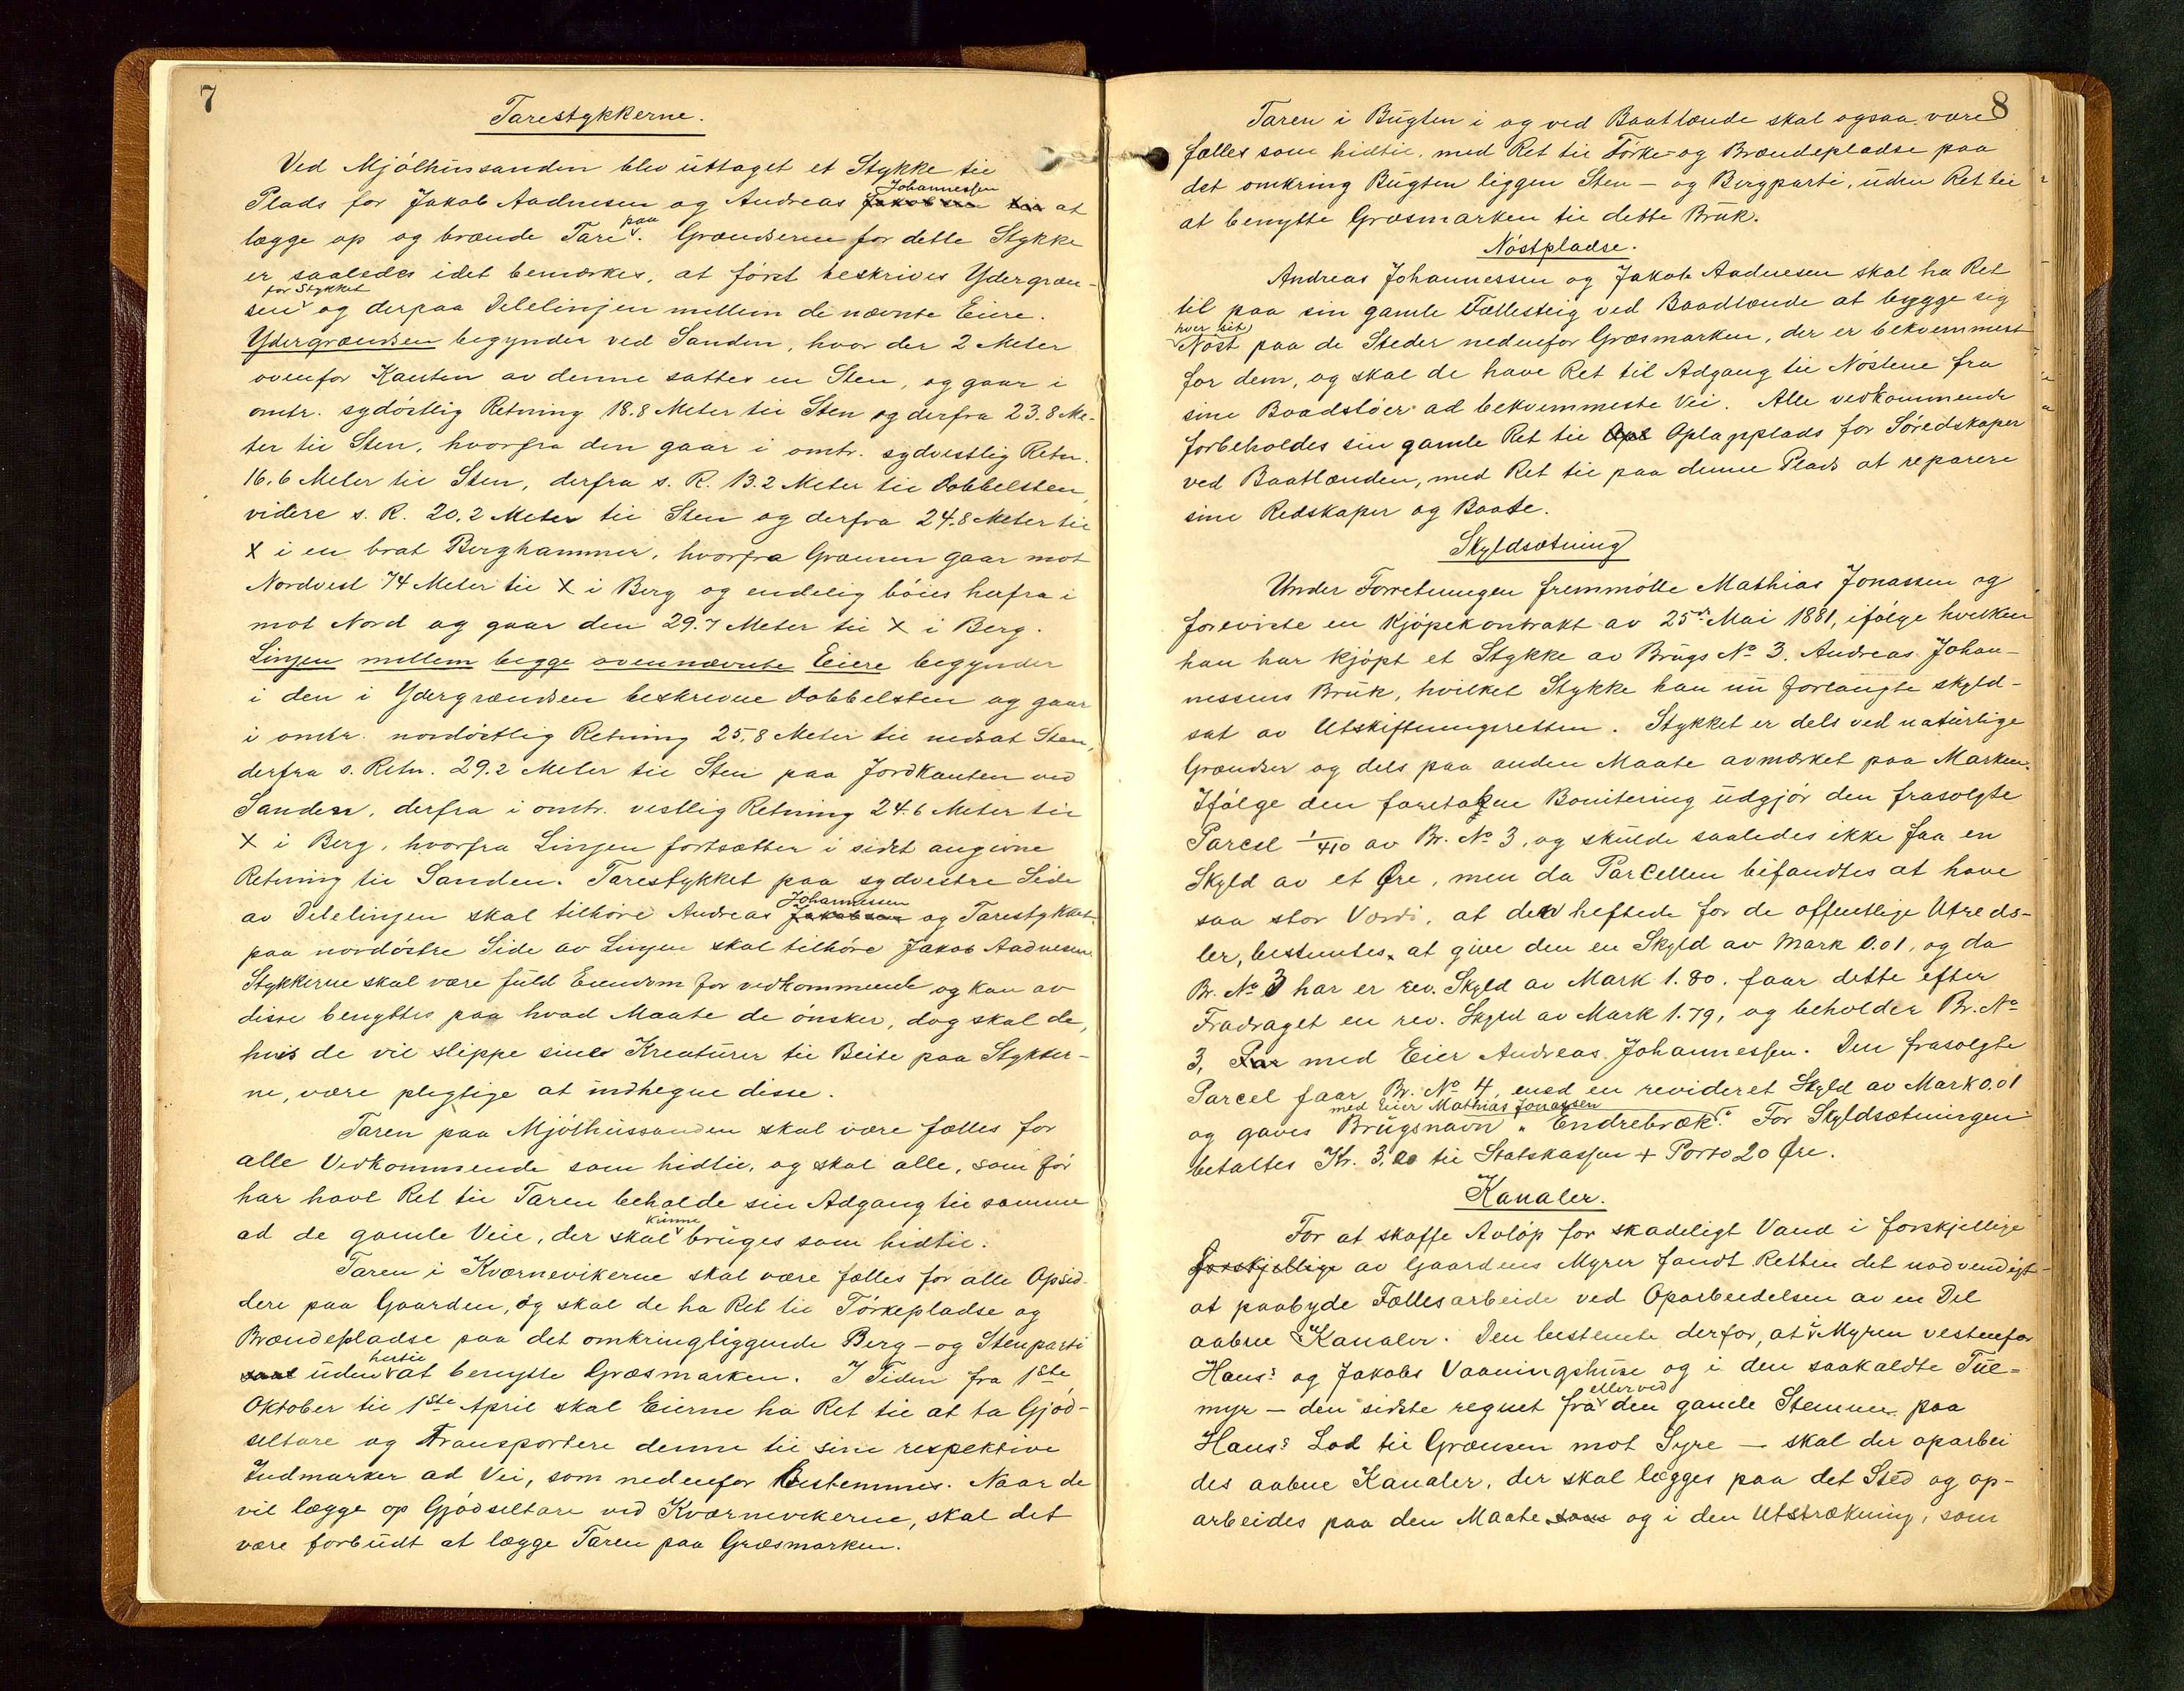 7
Tarestykkerne.
Ved Mjólhússanden blev úttaget et Stykke til
Johannessen
Plads for Jakob Aadnesen og Andreas Jakobsen til at
paa
lægge op og brænde Tare. Grændserne for dette Stykke
er saaledes idet bemærkes, at først beskrives Ydergræn-
for Stykket
sen og derpaa Delelinjen mellem de nævnte Eiere.
Ydergrændsen begynder ved Sanden, hvor der 2 Meter
ovenfor Kanten av denne sattes en Sten, og gaar i
omtr. sydóstlig Retning 18.8 Meter til Sten og derfra 23.8 Me-
ter til Sten, hvorfra den gaar i omtr. sydvestlig Retn.
16.6 Meter til Sten, derfra s. R. 13.2 Meter til Dobbelsten,
videre s. R. 20.2 Meter til Sten og derfra 24.8 Meter til
X i en brat Berghammer, hvorfra Grænsen gaar mot
Nordvest 74 Meter til X i Berg og endelig bóies herfra i
mot Nord og gaar den 29.7 Meter til X i Berg.
Linjen mellem begge ovennævnte Eiere begynder
i den i Ydergrændsen beskrevne Dobbelsten og gaar
i omtr. nordóstlig Retning 25.8 Meter til nedsat Sten,
derfra s. Retn. 29.2 Meter til Sten paa Jordkanten ved
Sanden, derfra i omtr. vestlig Retning 24.6 Meter til
X i Berg, hvorfra Linjen fortsætter i sidst angivne
Retning til Sanden. Tarestykket paa sydvestre Side
Johannessen
av Delelinjen skal tilhóre Andreas Jakobsen og Tarestykket
paa nordóstre Side av Linjen skal tilhóre Jakob Aadnesen.
Stykkerne skal være fuld Eiendom for vedkommende og kan av
disse benyttes paa hvad Maate de ónsker, dog skal de,
hvis de vil slippe sine Kreaturer til Beite paa Stykker-
ne, være plegtige at indhegne disse.
Taren paa Mjólhússanden skal være fælles for
alle Vedkommende som hidtil, og skal alle, som fór
har havt Ret til Taren beholde sin Adgang til samme
kunne
ad de gamle Veie, der skal brúges som hidtil.
Taren i Kværnevikerne skal være fælles for alle Opsid-
dere paa Gaarden, og skal de ha Ret til Tórkepladse og
Brændepladse paa det omkringliggende Berg- og Stenparti
hertil
samt uden at benytte Græsmarken. I Tiden fra 1ste
Oktober til 1ste April skal Eierne ha Ret til at ta Gjód-
seltare og Transportere denne til sine respektive
Indmarker ad Vei, som nedenfor bestemmes. Naar de
vil lægge op Gjódseltare ved Kværnevikerne, skal det
være forbúdt at lægge Taren paa Græsmarken.
8
Taren i Bugten i og ved Baatlænde skal ogsaa være
fælles som hidtil, med Ret til Tórke- og Brændepladse paa
det omkring Bugten liggen Sten- og Bergparti, uden Ret til
at benytte Græsmarken til dette Brúk.
Nóstpladse.
Andreas Johannessen og Jakob Aadnesen skal ha Ret
til paa sin gamle Fællesteig ved Baadlænde at bygge sig
hver sit
Nóst paa de Steder nedenfor Græsmarken, der er bekvemmest
for dem, og skal de have Ret til Adgang til Nóstene fra
sine Baadstóer ad bekvemmeste Vei. Alle vedkommende
forbeholdes sin gamle Ret til Opl Oplagsplads for Sóredskaper
ved Baatlænden, med Ret til paa denne Plads at reparere
sine Redskaper og Baate.
Skyldsætning
Under Forretningen fremmótte Mathias Jonassen og
foreviste en Kjópekontrakt av 25de Mai 1881, ifólge hvilken
han har kjópt et Stykke av Brúgs No 3. Andreas Johan-
nessens Brúk, hvilket Stykke han nú forlangte skyld-
sat av Utskiftningsretten. Stykket er dels ved natúrlige
Grændser og dels paa anden Maate avmærket paa Marken.
Ifólge den foretakne Bonitering údgjór den frasolgte
Parcel 1/410 av Br. No 3, og skulde saaledes ikke faa en
Skyld av et Øre, men da Parcellen befandtes at have
saa stor Værdi, at den heftede for de offentlige Utreds-
ler, bestemtes at give den en Skyld av Mark 0.01, og da
Br. No 3 har er rev. Skyld av Mark 1.80. faar dette efter
Fradraget en rev. Skyld av Mark 1.79, og beholder Br. No
3, Par med Eier Andreas Johannessen. Den frasolgte
Parcel faar Br. No 4 med en revideret Skyld av Mark 0,01
med Eier Mathias Jonassen
og gaves Brúgsnavn "Endrebræk". For Skyldsætningen
betaltes Kr. 3.00 til Statskassen + Porto 20 Øre.
Kanaler.
For at skaffe Avlóp for skadeligt Vand i forskjellige
forskjellige av Gaardens Myrer fandt Retten det nødvendigt
at paabyde Fællesarbeide ved Oparbeidelsen av en Del
aabne Kanaler. Den bestemte derfor, at i Myren vestenfor
Hans's og Jakobs Vaaningshúse og i den saakaldte Tue-
eller ved
myr – den sidste regnet fra den gamle Stemme paa
Hans's Lod til Grænsen mot Syre – skal der oparbei
des aabne Kanaler, der skal lægges paa det Sted og op-
arbeides paa den Maate som og i den Utstrækning, som